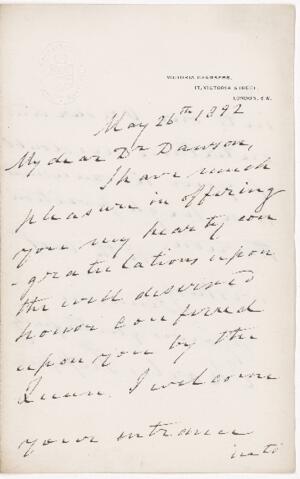 VICTORIA CHAMBERS,
17, VICTORIA STREET,
LONDON, S.W.
May 26th 1892
My dear Dr Dawson,
I have much
pleasure in offering
you my hearty con
-gratulations upon
the well deserved
honor conferred
upon you by the
Queen. I welcome
your entrance
into